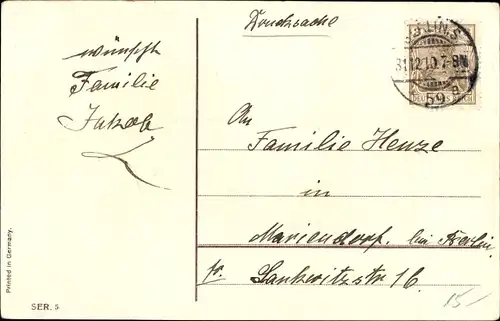 Drucksache
wünscht
Familie
BERLIN S.
31.12.10.7-8N.
59 a
An
Familie Henze
in
Mariendorf. bei Berlin.
Lankwitzstr 16.
Printed in Germany.
SER. 5
15/